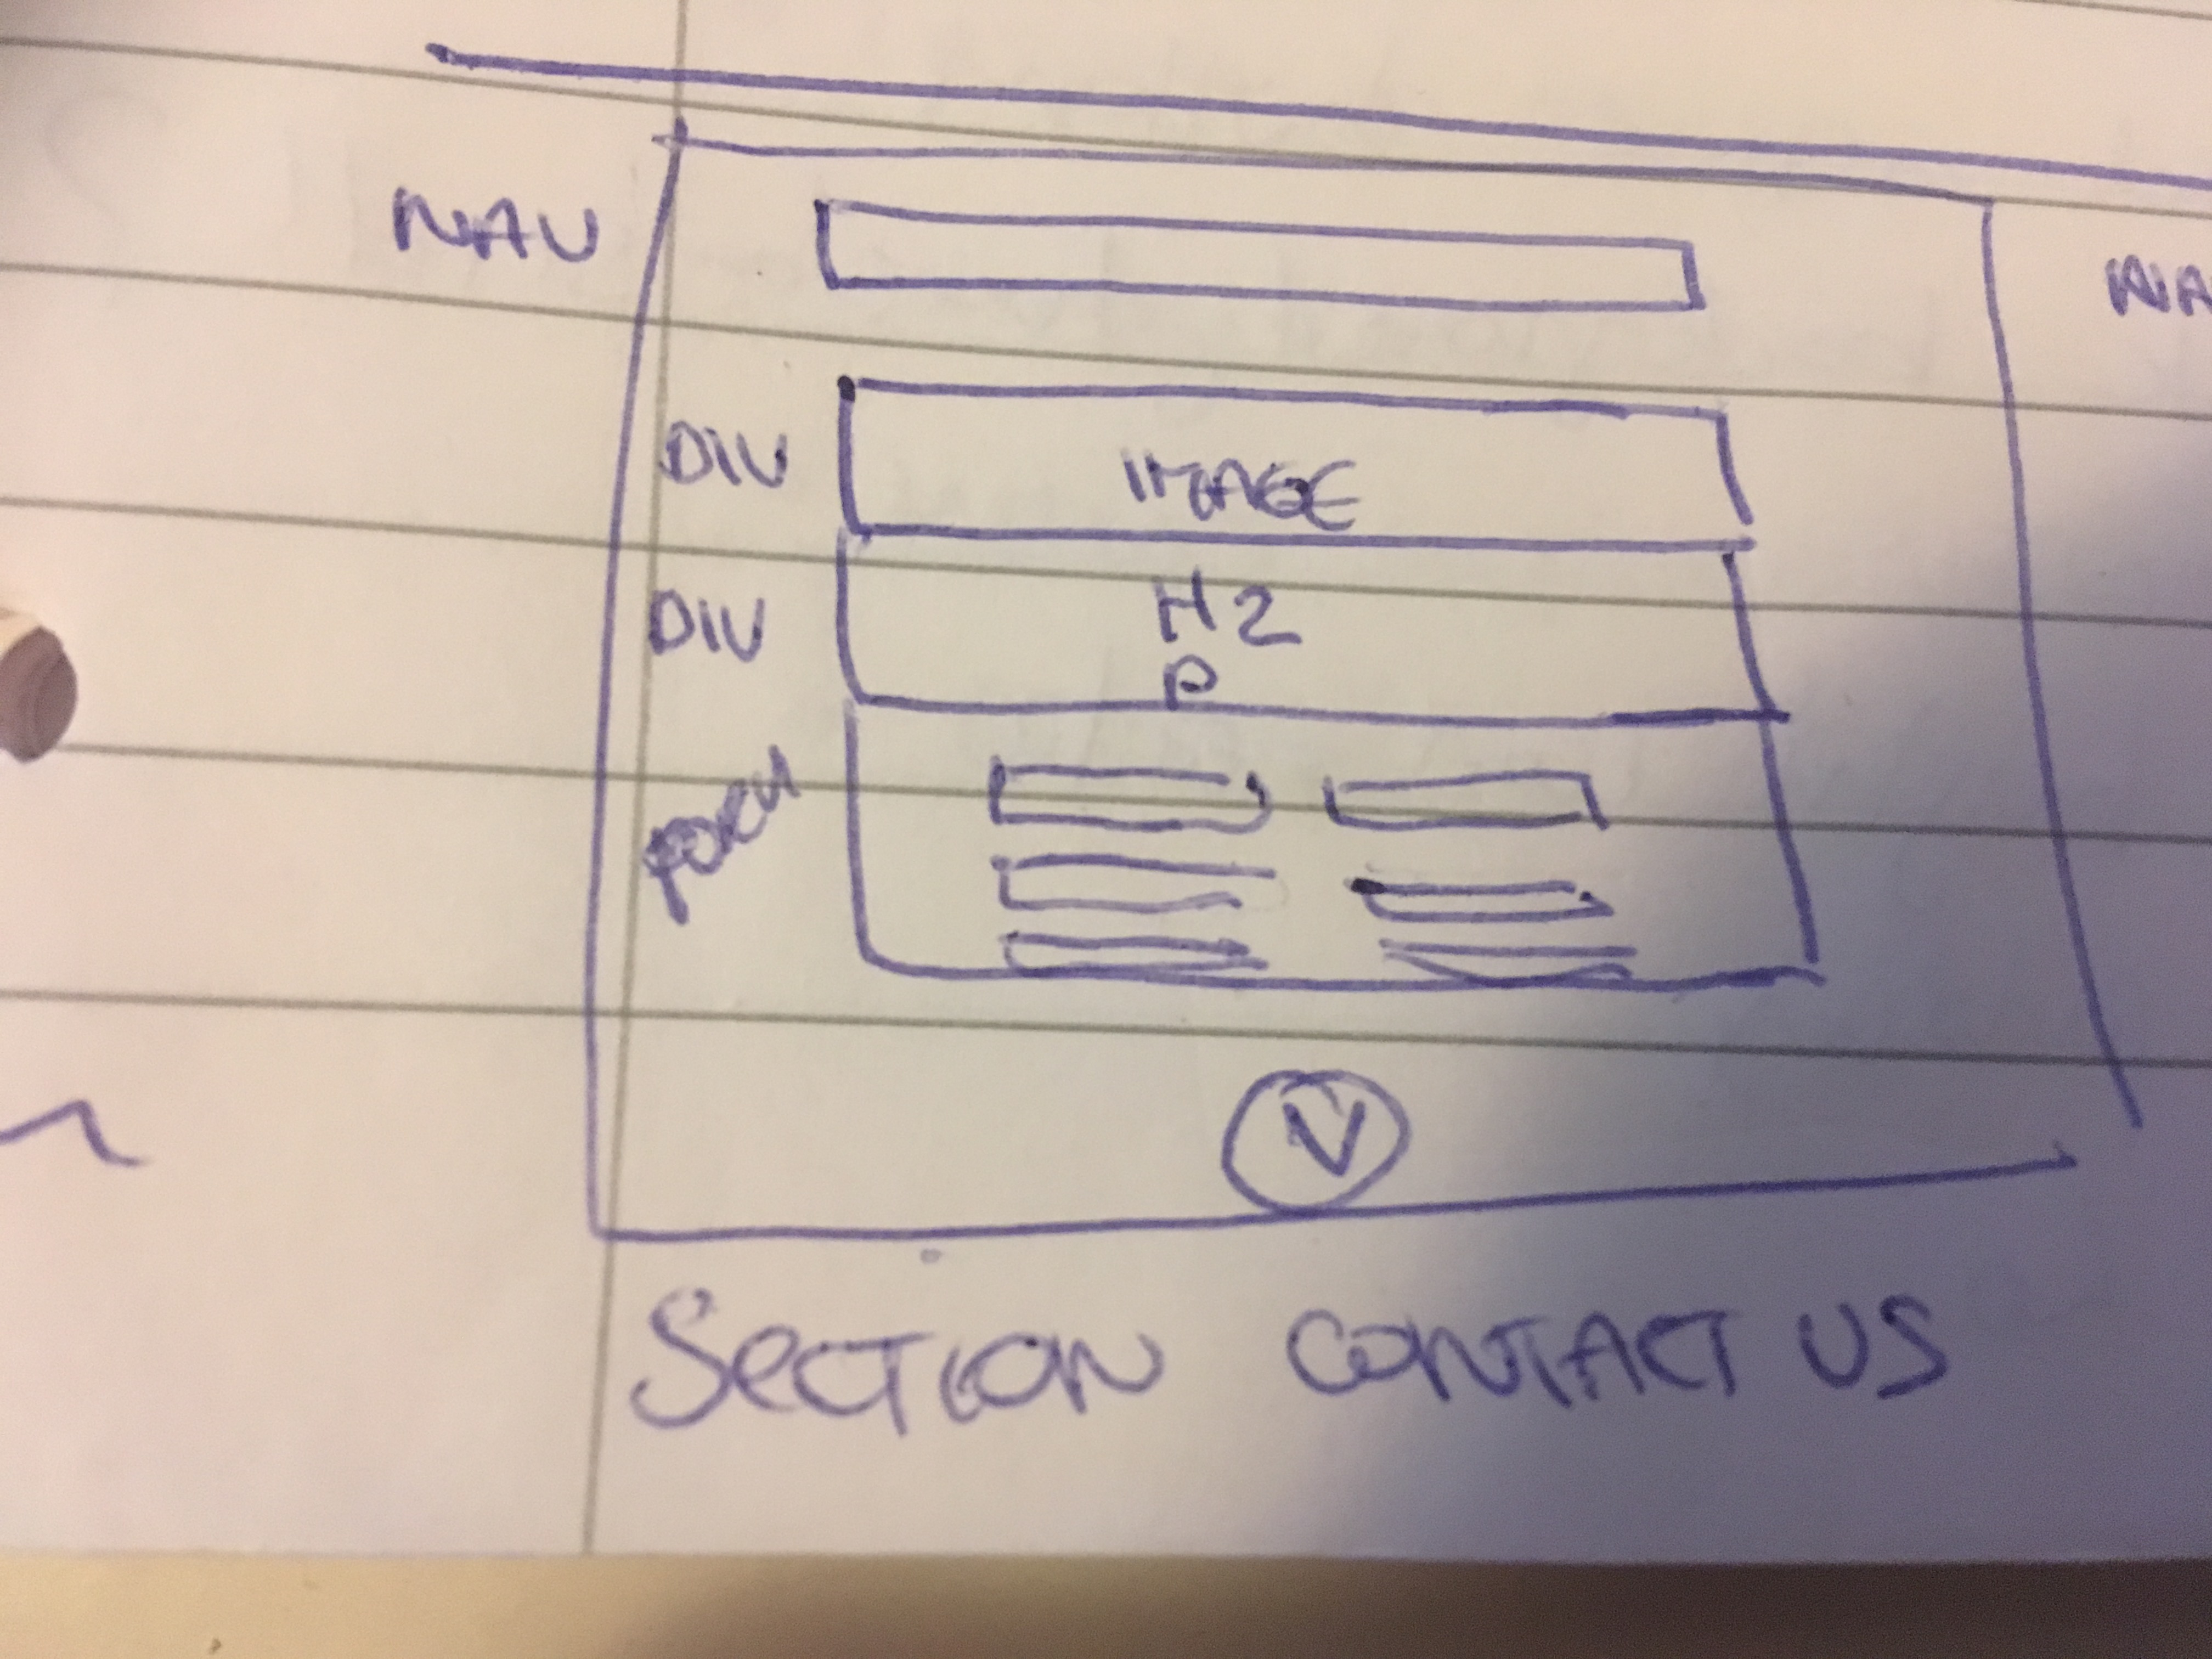 NAV
NA
DIV
IMAGE
DIV
H2
P
FORM
V
SECTION CONTACT US